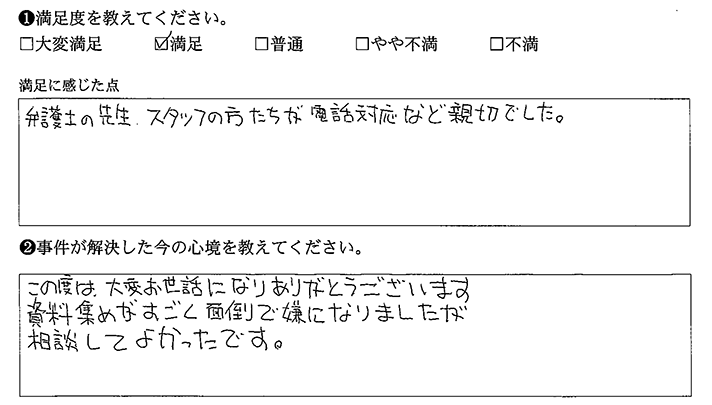 ❶満足度を教えてください。
□大変満足 ☑満足 □普通 □やや不満 □不満
満足に感じた点
弁護士の先生、スタッフの方たちが電話対応など親切でした。
❷事件が解決した今の心境を教えてください。
この度は、大変お世話になりありがとうございます
資料集めがすごく面倒で嫌になりましたが
相談してよかったです。